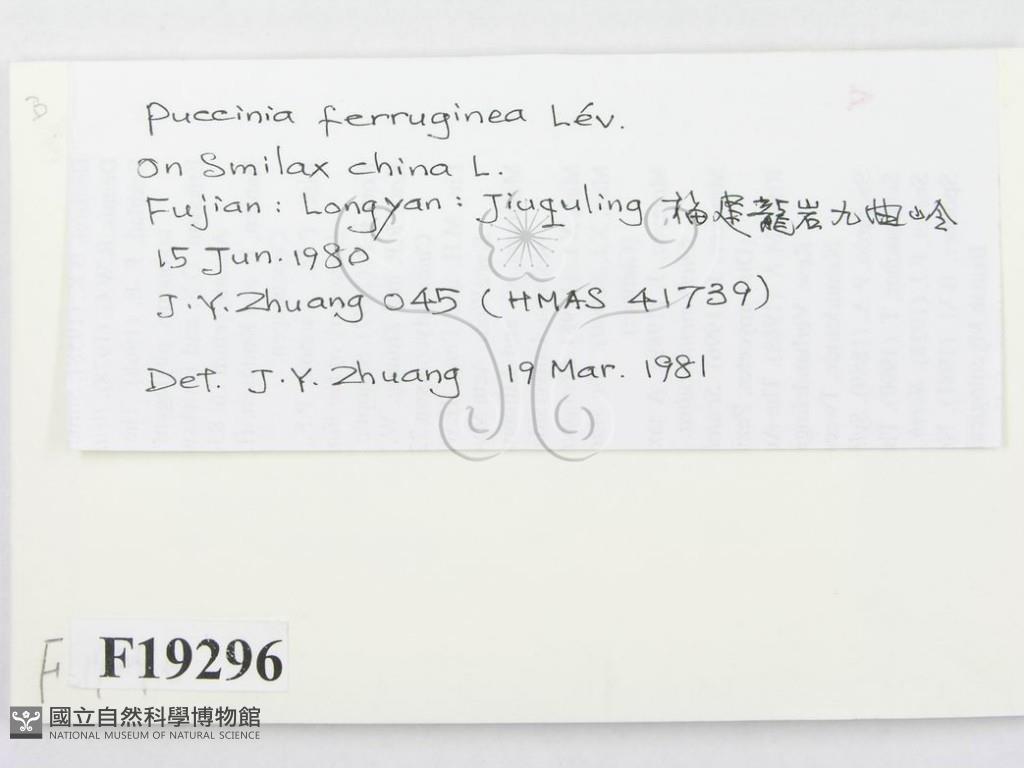 Puccinia ferruginea Lév.
On Smilax china L.
Fujian : Longyan : Jiuquling 福建龍岩九曲岭
15 Jun. 1980
J.Y. Zhuang 045 (HMAS 41739)
Det. J.Y. Zhuang 19 Mar. 1981
F19296
國立自然科學博物館
NATIONAL MUSEUM OF NATURAL SCIENCE